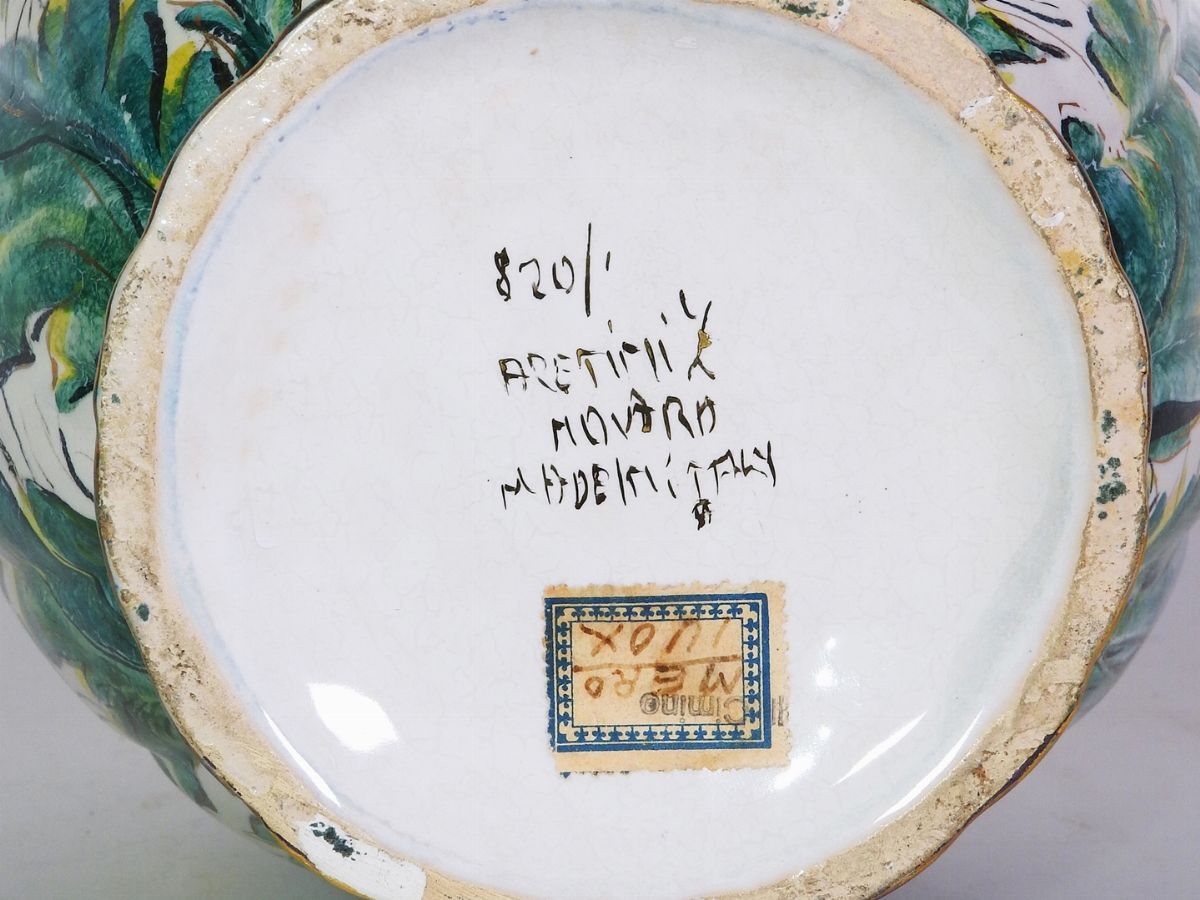 820/1
ARETINI X
NOVARA
MADE IN ITALY
MERO
Cimino